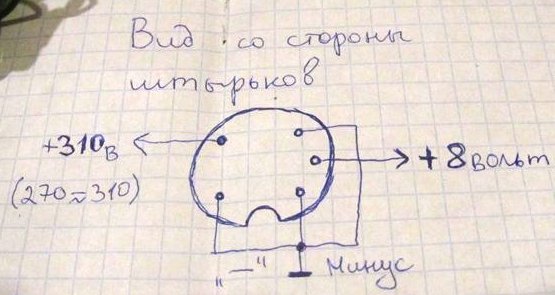 Вид со стороны
штырьков
+310в
+8вольт
(270≈310)
"—" Минус